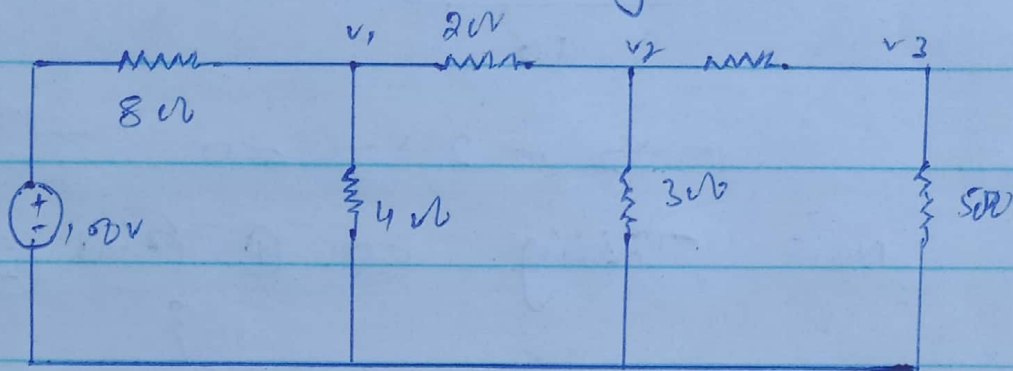 v1 2Ω v2 v3
8Ω
+
-
4Ω 3Ω 5Ω